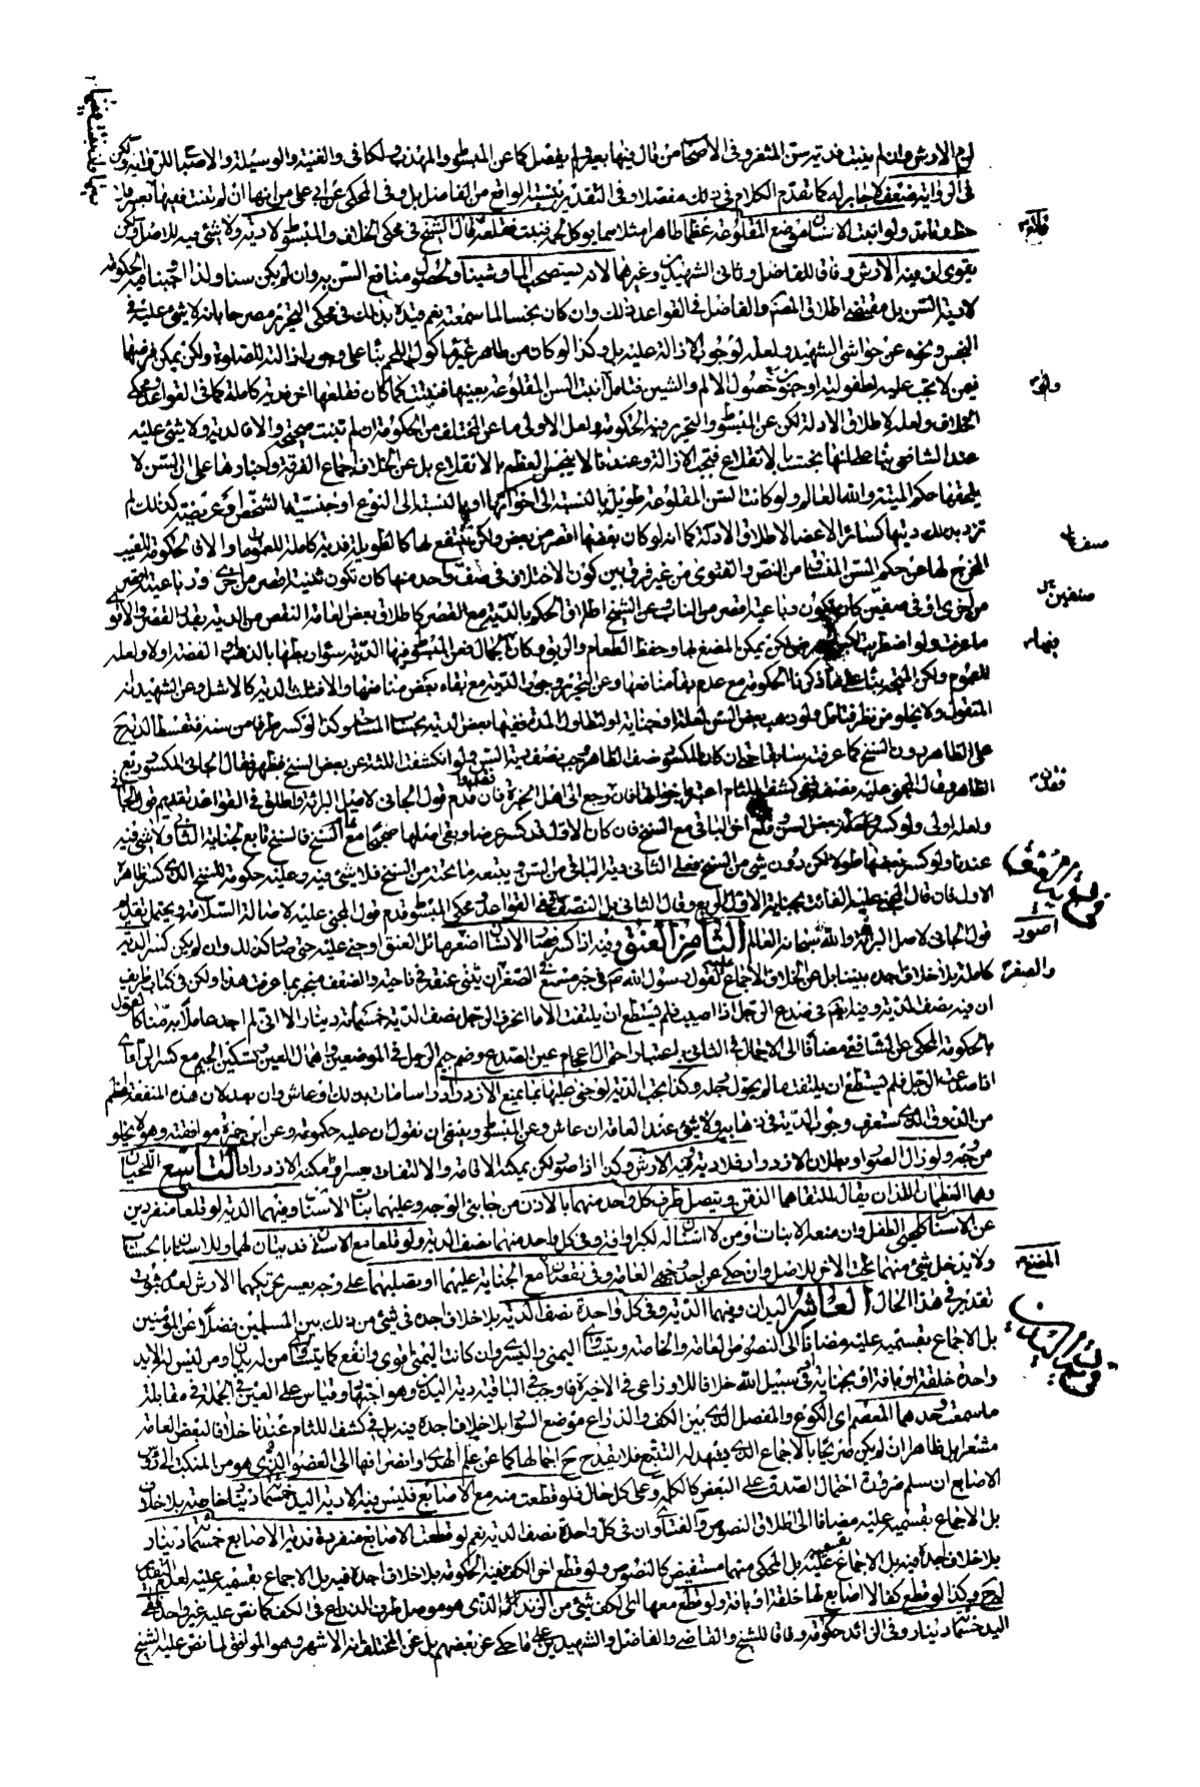 لزم الارش وان لم ينبت فدية سن المثغر وفي الاصحاب من قال فيها بعير ولم يفصل كما عن المبسوط والمهذب والكافي والغنية والوسيلة والاصباح
في الرواية ضعف لا جابر له كما تقدم الكلام في ذلك مفصلا وفي التقدير
ولو اثبت الانسان موضع المقلوعة عظما طاهرا مثلا مما يؤكل لحمه فنبت فقلعه قال الشيخ في محكى الخلاف والمبسوط لا دية ولا شئ فيه للاصل ولكن
يقوى ان فيه الارش وفاقا للفاضل وثاني الشهيدين وغيرهما لانه يستصحب الما وشينا ولحصول منافع السن به وان لم يكن سنا ولذا اوجبنا فيه الحكومة
لا دية السن بل مقتضى اطلاق المصنف والفاضل في القواعد ذلك وان كان نجسا لما سمعته نعم قيده بذلك في محكى التحرير مصرحا بانه لا شئ عليه في
النجس ونحوه عن حواشي الشهيد ولعله لوجوب الازالة عليه بل وكذا لو كان من طاهر غير مأكول اللحم بناء على وجوب ازالته للصلوة ولكن يمكن فرضها
فيمن لا يجب عليه لطفولية او جنون حصول الالم والشين فتأمل اثبت السن المقلوعة بعينها فنبتت كما كان فقلعها اخر فدية كاملة كما في القواعد ومحكى
الخلاف ولعله لاطلاق الادلة لكن عن المبسوط والتحرير فيه الحكومة ولعل الاولى ما عن المختلف من الحكومة ان لم تنبت صحيحة والا فالدية ولا شئ عليه
عند الشافعي بناء على انها نجست بالانقلاع فتجب الازالة وعندنا لا ينجس العظم بالانقلاع بل عن الخلاف اجماع الفرقة واخبارها على ان السن لا
يلحقها حكم الميتة والله العالم ولو كانت السن المقلوعة طويلة بالنسبة الى اخواتها او بالنسبة الى النوع او جنسية الشخص او عريضة كذلك لم
تزد بذلك ديتها كسائر الاعضاء لاطلاق الادلة كما انه لو كان بعضها اقصر من بعض ولكن ينتفع بها كالطويلة فدية كاملة للعموم والا فالحكومة للعيب
المخرج لها عن حكم السن المنساق من النص والفتوى من غير فرق بين كون الاختلاف في صنف واحد منها كان تكون ثنية اقصر من اخرى ورباعية اقصر
من اخرى او في صنفين كان تكون رباعية اقصر من الناب وعن الشيخ اطلاق الحكم بالدية مع القصر كاطلاق بعض العامة النقص من الدية بقدر القصر والاقوى
ما عرفت ولو اضطربت لمرض لكن يمكن المضغ بها وحفظ الطعام والريق وكان بها الجمال فعن المبسوط فيها الدية سواء ربطها بالذهب او الفضة او لا ولعله
للعموم ولكن المتجه بناء على ما ذكرنا الحكومة مع عدم بقاء منافعها وعن التحرير وجوب الدية مع بقاء بعض منافعها والا فثلث الدية كالاشل وعن الشهيد انه
المنقول ولا يخلو من نظر فتأمل ولو ذهب بعض السن لعلة او جناية او لتطاول المدة ففيها بعض الدية بحساب المساحة وكذا لو كسر طرفا من سنه فقسط الدية ح
على الظاهر دون السنخ كما عرفته سابقا حتى ان كان المكسور نصف الظاهر وجب نصف دية السن ولو انكشفت اللثة عن بعض السنخ فظهر فقال الجاني المكسور ربع
الظاهر وقال المجني عليه نصفه ففي كشف اللثام اعتبر باخواتها فان رجع الى اهل الخبرة فان قدم قول الجاني لاصل البرائة واطلق في القواعد تقديم قول الجاني
ولعله اولى ولو كسر واحد بعض السن وقلع اخر الباقي مع السنخ فان كان الاول قد كسر عرضا وبقى اصلها صحيحا مع السنخ فالسنخ تابع لجناية الثاني ولا شئ فيه
عندنا ولو كسر بعضها طولا لكن دون شئ من السنخ فعلى الثاني دية الباقي من السن ويتبعه ما تحته من السنخ فلا شئ فيه وعليه حكومة للسنخ الذي كسر ظاهره
الاول فان قال المجني عليه الفائت بجناية الاول الربع وقال الثاني بل النصف ففي القواعد ومحكى المبسوط قدم قول المجني عليه لاصالة السلامة ويحتمل تقديم
قول الجاني لاصل البرائة والله سبحانه العالم الثامن العنق وفيه اذا كسر فصار الانسان اصعر مائل العنق او جنى عليه حتى صار كذلك وان لم يكن كسر الدية
كاملة بلا خلاف اجده بيننا بل عن الخلاف الاجماع عليه لقول رسول الله ص في خبر مسمع الصعر ان يثنى عنقه في ناحية والضعف منجبر بما عرفت هذا ولكن في كتاب ظريف
ان فيه نصف الدية وفيه ايضا في صدغ الرجل اذا اصيب فلم يستطع ان يلتفت الا ما انحرف الرجل نصف الدية خمسمائة دينار الا اني لم اجد عاملا به منا كالقول
بالحكومة المحكى عن الشافعي مضافا الى الاجمال في الثاني باعتبار احتمال اعجام عين الصدع وضم جيم الرجل في الموضعين واهمال العين وتسكين الجيم مع كسر الراء اي
اذا صدعت الرجل فلم يستطع ان يلتفت ما لم يحول رجله وكذا يجب الدية لو جنى عليها بما يمنع الازدراد راسا مات بذلك او عاش وان بعد لان هذه المنفعة اعظم
من الذوق الذي ستعرف وجوب الدية في ذهابه ولا شئ عند العامة ان عاش وعن المبسوط وينبغي ان نقول ان عليه حكومة وعن ابن حمزة موافقته وهو لا يخلو
من وجه ولو زال الصعر او بطلان الازدراد فلا دية وفيه الارش وكذا اذا صور لكن يمكنه الاقامة والالتفات بعسر او يمكنه الازدراد التاسع اللحيان
وهما العظمان اللذان يقال لملتقاهما الذقن ويتصل طرف كل واحد منهما بالاذن من جانبي الوجه وعليهما نبات الاسنان وفيهما الدية لو قلعا منفردين
عن الاسنان كلحيى الطفل وان منعه الانبات او من لا اسنان له لكبر او افة وفي كل واحد منهما نصف الدية ولو قلعا مع الاسنان فديتان لهما وللاسنان بالحساب
ولا يدخل شئ منهما تحت الاخر للاصل وان حكى عن احد وجهى العامة وفي نقصان المضغ مع الجناية عليهما او تصلبهما على وجه يعسر تحريكهما الارش لعدم ثبوت
تقدير في هذا الحال العاشر اليدان وفيهما الدية وفي كل واحدة نصف الدية بلا خلاف اجده في شئ من ذلك بين المسلمين فضلا عن المؤمنين
بل الاجماع بقسميه عليه مضافا الى النصوص من العامة والخاصة ويتساوى اليمنى واليسرى وان كانت اليمنى اقوى وانفع كما يتساوى من له يدان ومن ليس له الا يد
واحدة خلقة او بافة او بجناية او في سبيل الله خلافا للاوزاعي في الاخيرة فاوجب في الباقية دية اليدين وهو اجتهاد وقياس على العين في الجملة في مقابلة
ما سمعت وحدهما المعصم اي الكوع والمفصل الذي بين الكف والذراع موضع السوار بلا خلاف اجده فيه بل في كشف اللثام عندنا خلافا لبعض العامة
مشعرا بل ظاهرا ان لم يكن صريحا بالاجماع الذي يشهد له التتبع فلا يقدح ح اجمالها كما عن علم الهدى او انصرافها الى العضو الذي هو من المنكب الى رؤوس
الاصابع ان سلم ضرورة احتمال الصدق على البعض كالكل وعلى كل حال فلو قطعت منه مع الاصابع فليس فيه الا دية اليد خمسمائة دينار خاصة بلا خلاف
بل الاجماع بقسميه عليه مضافا الى اطلاق النصوص والفتاوى ان في كل واحدة نصف الدية نعم لو قطعت الاصابع منفردة فدية الاصابع خمسمائة دينار
بلا خلاف اجده فيه بل الاجماع بقسميه عليه بل المحكى منهما مستفيض كالنصوص ولو قطع اخر الكف ففيه الحكومة بلا خلاف اجده فيه بل الاجماع بقسميه عليه لعدم التقدير
له ح وكذا لو قطع كفا لا اصابع لها خلقة او بافة ولو قطع معها اي الكف شئ من الزند الذي هو موصل طرف الذراع في الكف كما نص عليه غير واحد ففي
اليد خمسمائة دينار وفي الزائد حكومة وفاقا للشيخ والقاضي والفاضل والشهيدين على ما حكى عن بعضهم بل عن المختلف انه الاشهر وهو الموافق لما نص عليه الشيخ
صنفين
في دية العنق
المضغ
في دية اليدين